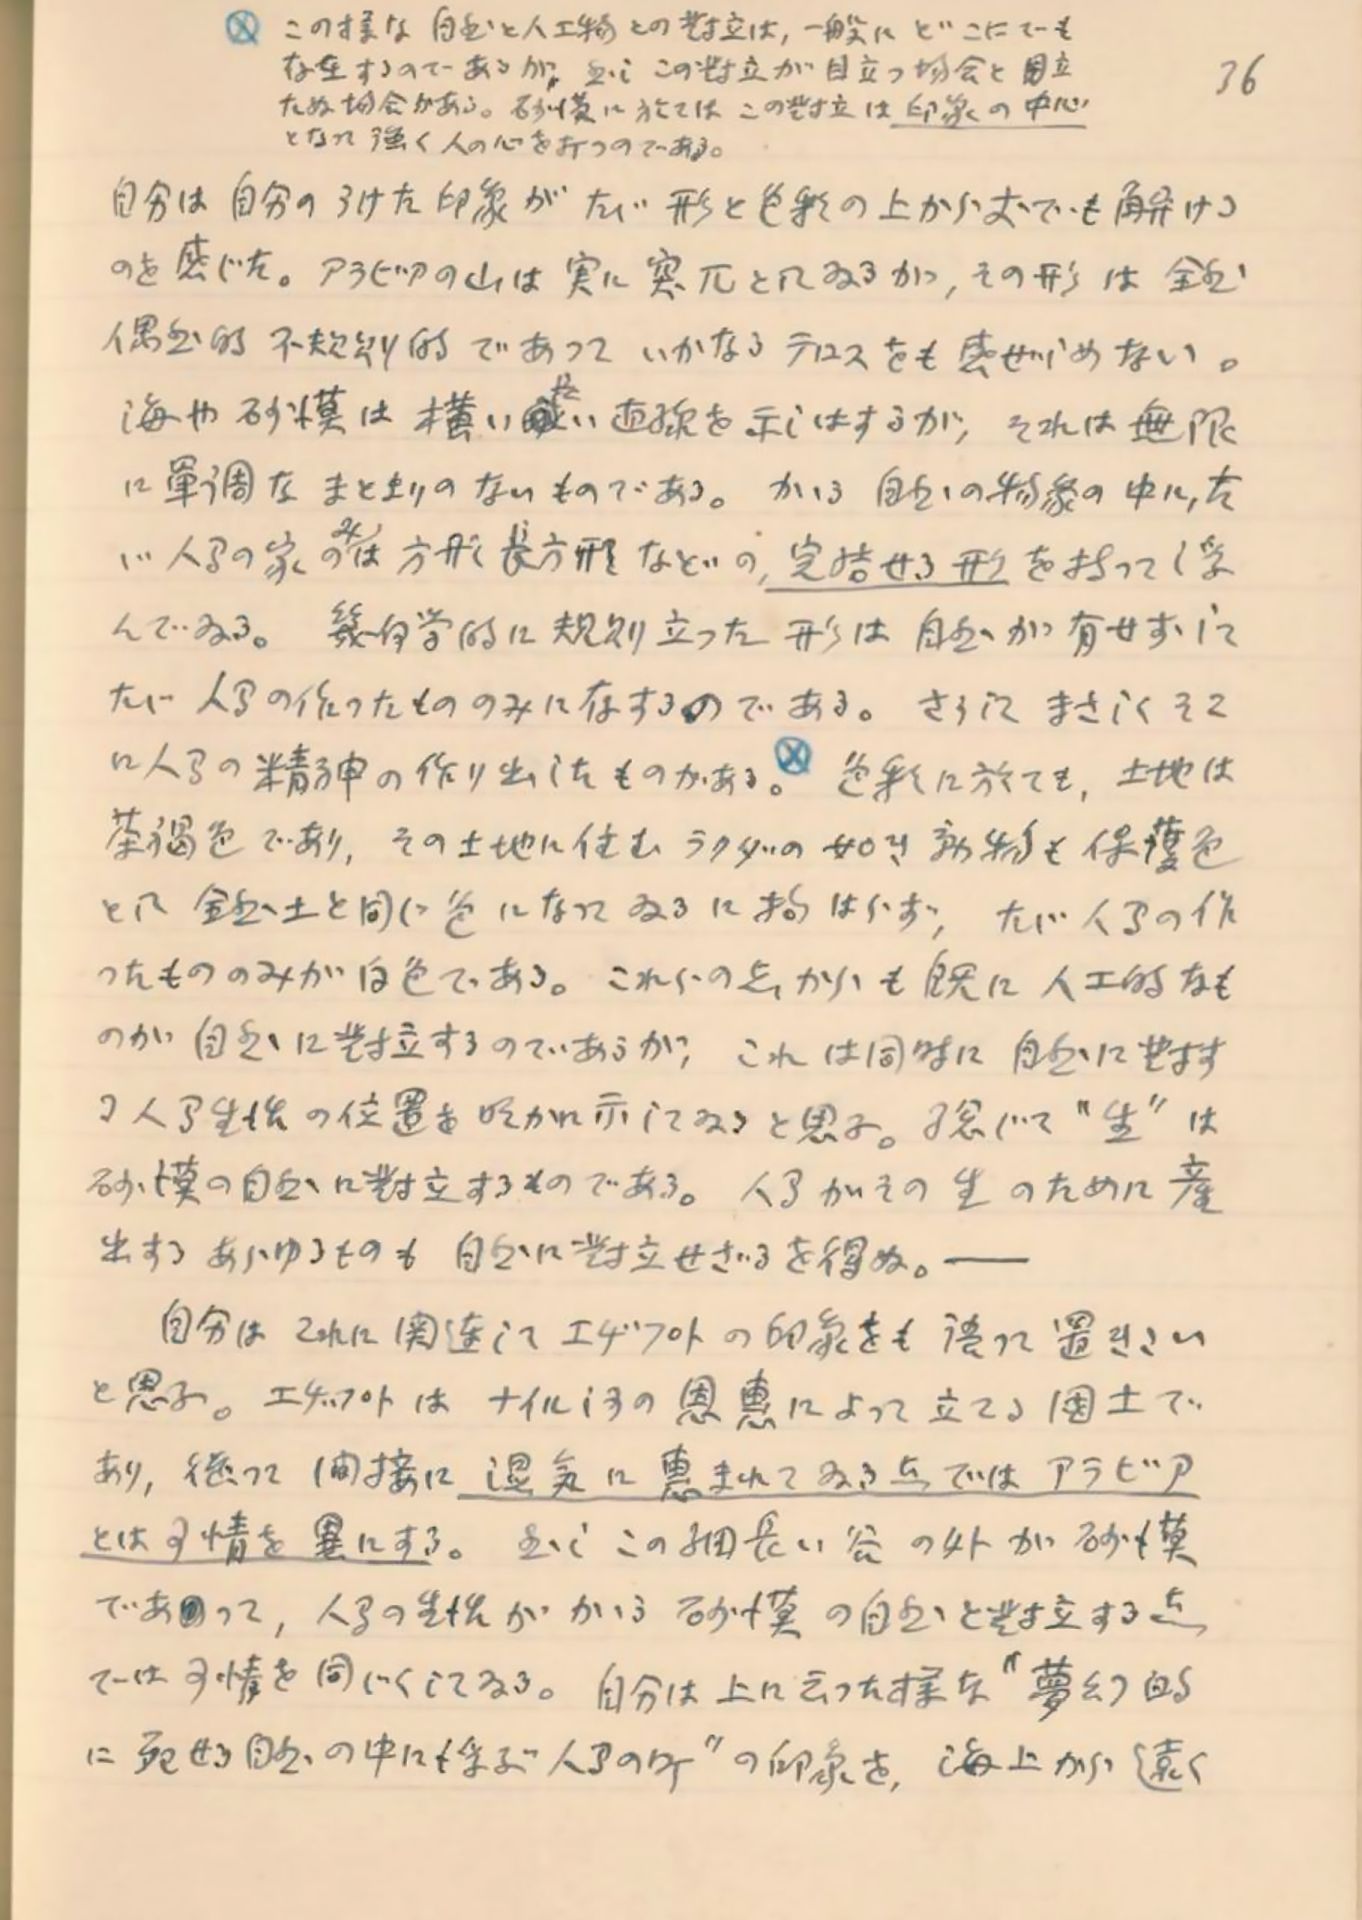 Ⓧ この様な 自然と人工物との對立は, 一般に どこにでも
存在するのであるが, 然し この對立が目立つ場合と目立
たぬ場合がある。砂漠に於ては この對立は印象の中心
となって 強く人の心を打つのである。
36
自分は 自分の うけた印象が たゞ 形と色彩の上からまでも解ける
のを感じた。アラビアの山は実に突兀としてゐるが, その形は 全然
偶然的 不規則的であって いかなるテロスをも感ぜしめない。
海や砂漠は横に長い直線を示しはするが, それは無限
に單調な まとまりのないものである。かゝる自然の物象の中に, た
ゞ人間の家のみは方形長方形などの, 完結せる形を持って浮
んでゐる。 幾何学的に規則立った形は自然が有せずして
たゞ人間の作ったもののみに存するのである。さうして まさしくそこ
に人間の精神の作り出したものがある。Ⓧ 色彩に於ても, 土地は
茶褐色であり, その土地に住むラクダの如き動物も保護色
として 全然土と同じ色になってゐるに拘はらず, たゞ人間の作
ったもののみが白色である。これらの点からも既に人工的なも
のが自然に對立するのであるが, これは同時に自然に對す
る人間生活の位置を明かに示してゐると思ふ。総じて"生"は
砂漠の自然に對立するものである。人間がその生のために産
出するあらゆるものも 自然に對立せざるを得ぬ。——
自分は これに関連して エヂプトの印象をも語って置きたい
と思ふ。エヂプトは ナイル河の恩恵によって立てる国土で
あり, 従って 間接に 湿気に恵まれてゐる点ではアラビア
とは事情を異にする。然し この細長い谷の外が砂漠
であって, 人間の生活がかゝる砂漠の自然と對立する点
では事情を同じくしてゐる。自分は上に云った様な"夢幻的
に死せる自然の中にも浮ぶ人間の町"の印象を, 海上から遠く